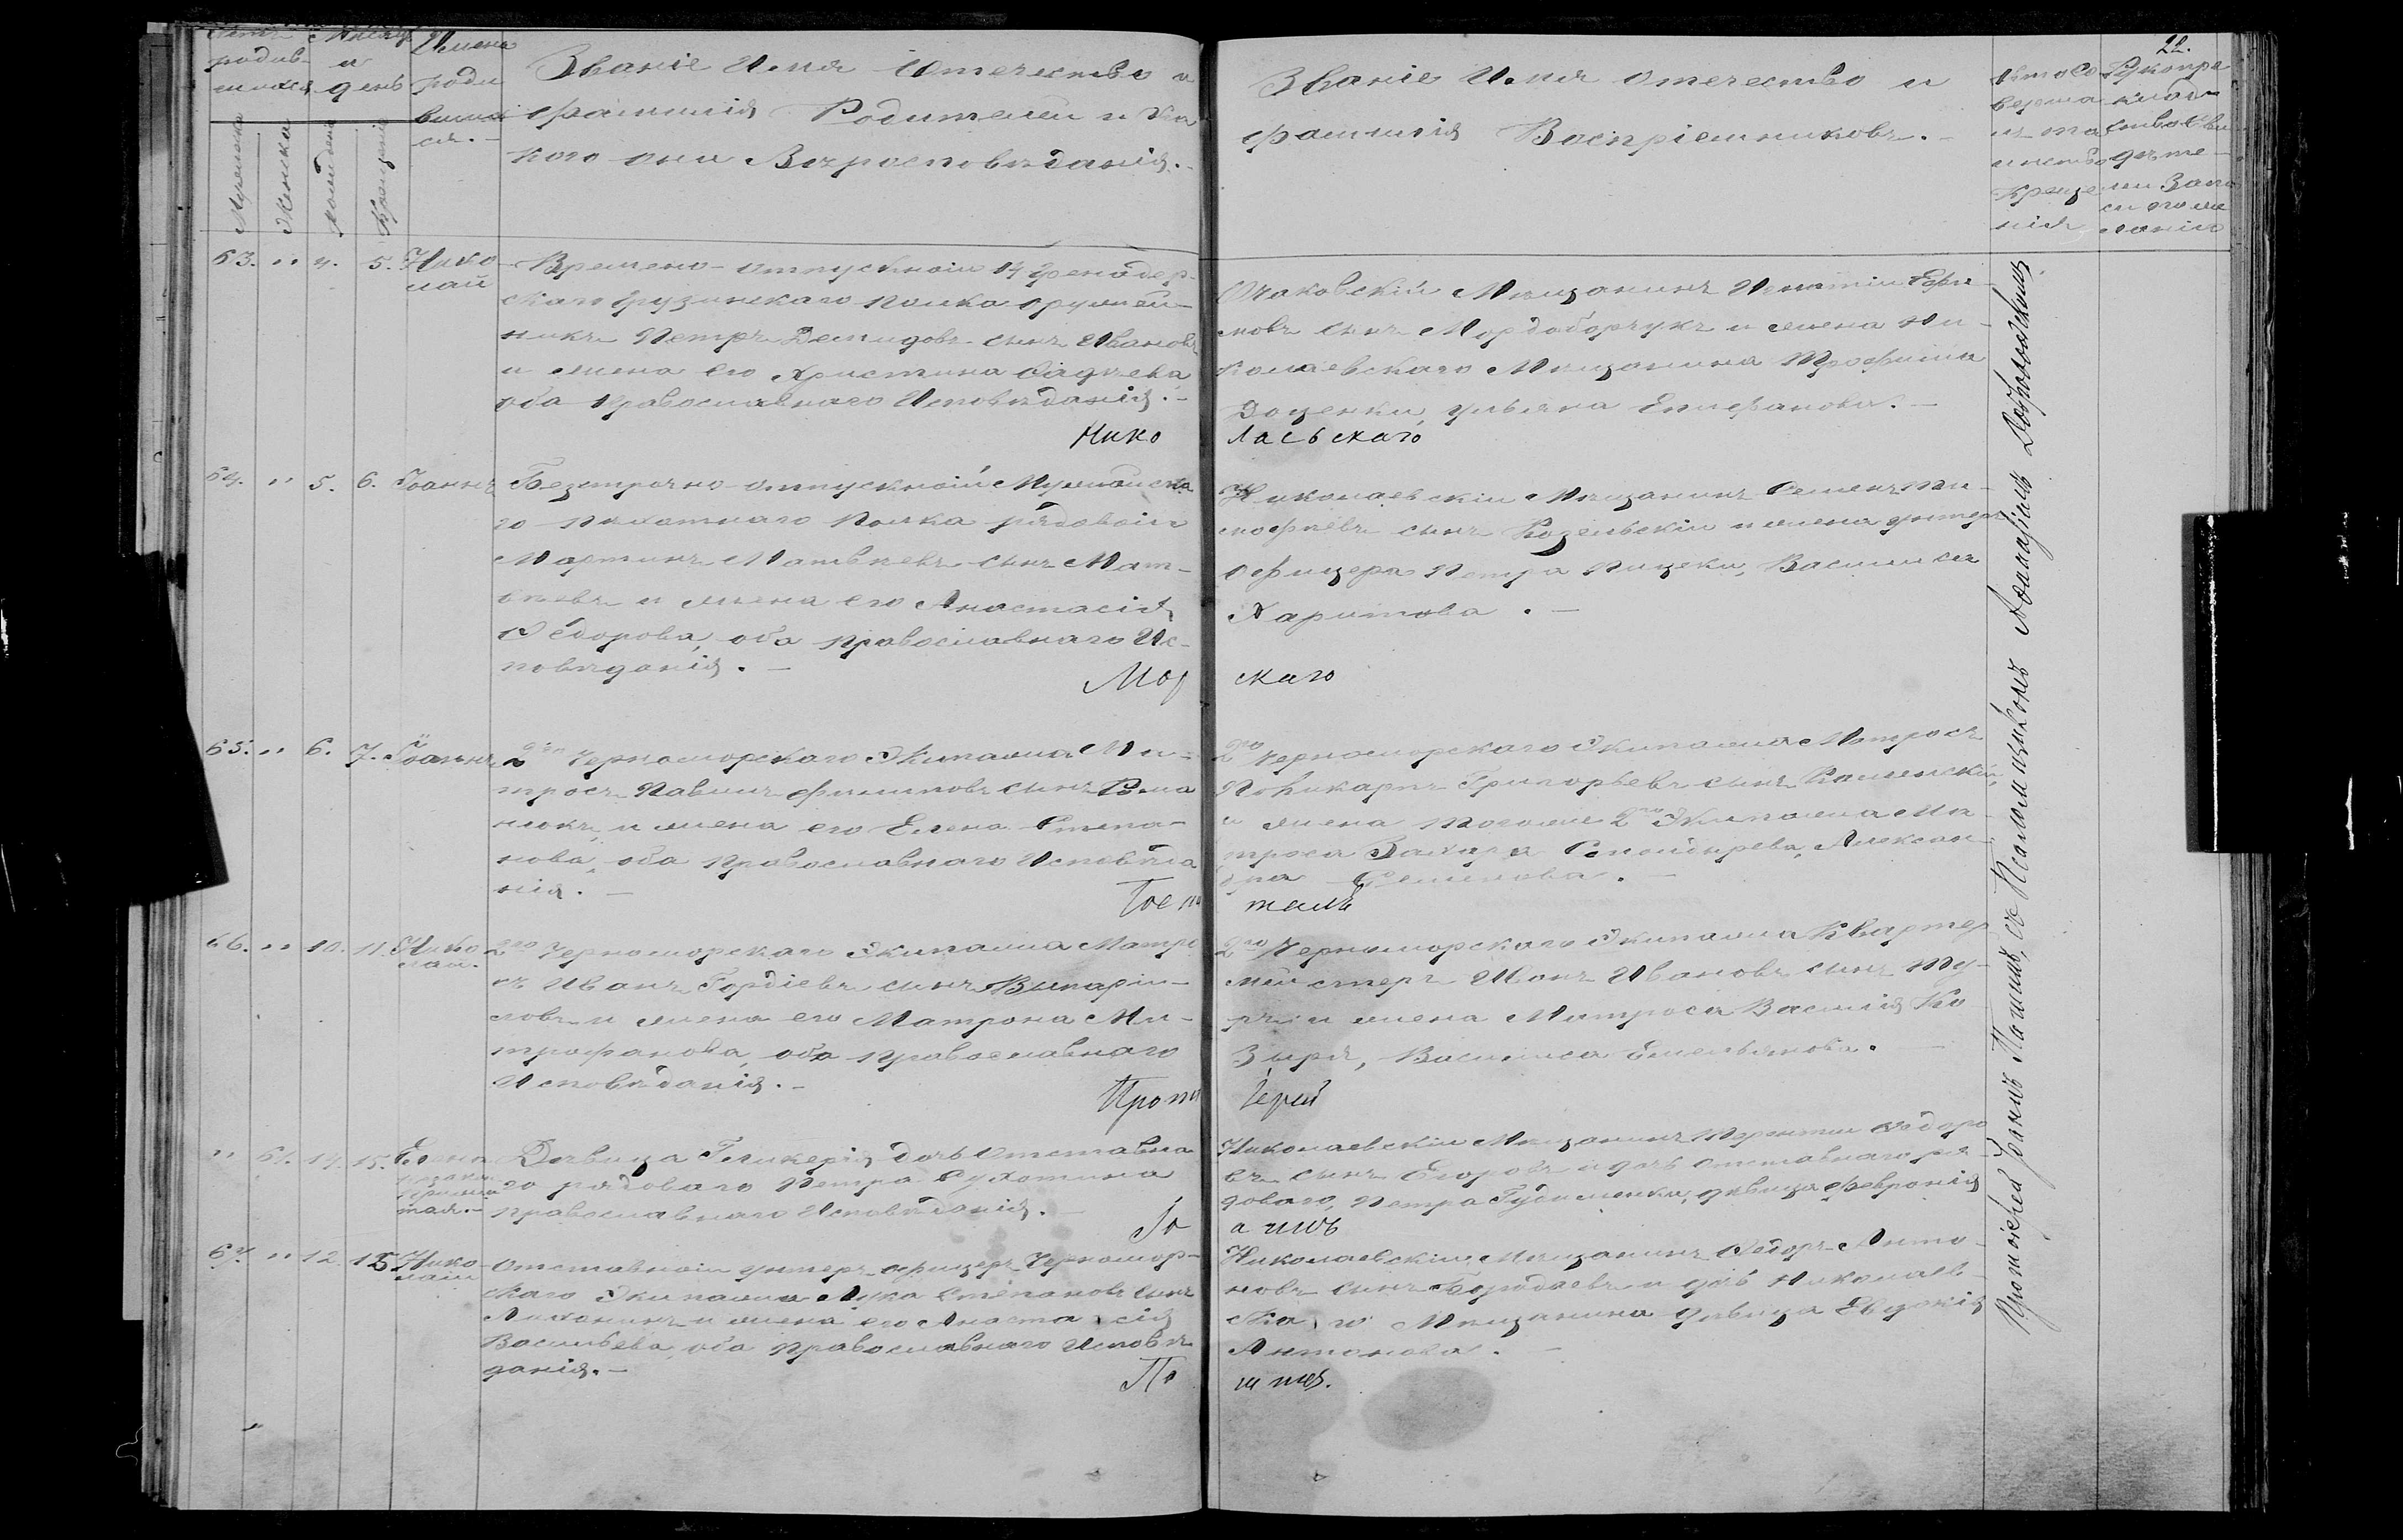 22.
родив-
шихся
и
день
Имена
роди
вших
ся.-
Мужеска
Женска
Рождения
Крещения
Званіе Имя Отчество и
фамилія Родителей и ка
кого они Вѣроисповѣданія.-
Званіе Имя Отчество и
фамилія Воспріемниковъ.-
Кто со
верша
лъ та
инство
Креще
нія
Рукопри
кладст
ство сви
дѣте-
лей Запи
си по же
ланію
63. " 4. 5. Нико
лай
Временно-отпускной 14 Гренадер-
скаго Грузинскаго полка оружей-
никъ Петръ Демидовъ сынъ Ивановъ
и жена его Христина Фадѣева,
оба Православнаго Исповѣданія.-
Очаковскій Мѣщанинъ Игнатій Ефи-
мовъ сынъ Мордоборчукъ и жена Ни-
колаевскаго Мѣщанина Трофима
Доценки, Ульяна Епифанова.-
Нико лаевскаго
64. " 5. 6. Іоаннъ
Безсрочно-отпускной
го Пѣхотнаго Полка рядовой
Мартинъ Матвѣевъ сынъ Мат-
вѣевъ и жена его Анастасія
Ѳедорова, оба Православнаго Ис-
повѣданія.-
Николаевскій Мѣщанинъ Семенъ Ти-
мофѣевъ сынъ Козельскій и жена унтеръ
офицера Петра Пицеки, Василиса
Харитова.-
Мор скаго
65. " 6. 7. Іоаннъ
2го Черноморскаго Экипажа Ма-
тросъ Павелъ Филиповъ сынъ Рома
нюкъ, и жена его Елена Степа-
нова, оба Православнаго Исповѣда
нія.-
2го Черноморскаго Экипажа Матросъ
Поликарпъ Григорьевъ сынъ Каменскій,
и жена тогоже 2го Экипажа Ма-
троса Захара Александ-
дра Семенова.-
Госпи таля
66. " 10. 11. Нико
лай.
2го Черноморскаго Экипажа Матро
съ Иванъ Гордіевъ сынъ
ловъ и жена его Матрона Ми-
трофанова, оба Православнаго
Исповѣданія.-
2го Черноморскаго Экипажа Квартер
мейстеръ Иванъ Ивановъ сынъ Ту-
и жена Матроса Василія Ко
зыря, Василиса Емельянова.-
Прото іерей
" 14. 15. Елена
Дѣвица Гликерія дочь Отставна
го рядоваго Петра Сухотина
Православнаго Исповѣданія.-
Николаевскій Мѣщанинъ Терентій Ѳедоро
въ сынъ Егоровъ и дочь отставнаго ря-
доваго, Петра дѣвица Февронія
Іо аннъ
67. " 12. 15 Нико
лай
Отставной унтеръ-офицеръ Черномор-
скаго Экипажа Лука Степановъ сынъ
и жена его Анастасія
Васильева, оба Православнаго Исповѣ
данія.-
Николаевскій Мѣщанинъ Ѳедоръ Анто-
новъ сынъ и дочь Николаев-
скаго Мѣщанина дѣвица Евдокія
Антонова.-
По пель.
Протоіерей Іоаннъ Попель, съ Псаломщикомъ Аѳанасіемъ Добровольскимъ